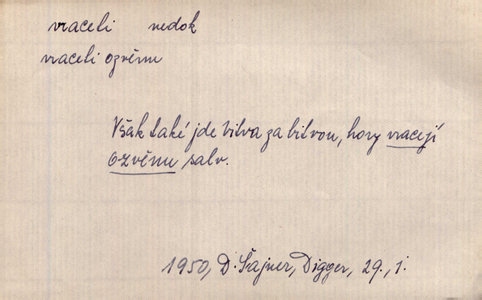 vraceli nedok
vraceli ozvěnu
Však také jde bitva za bitvou, hory vracejí
ozvěnu salv.
1950, D. Šajner, Digger, 29, 1.